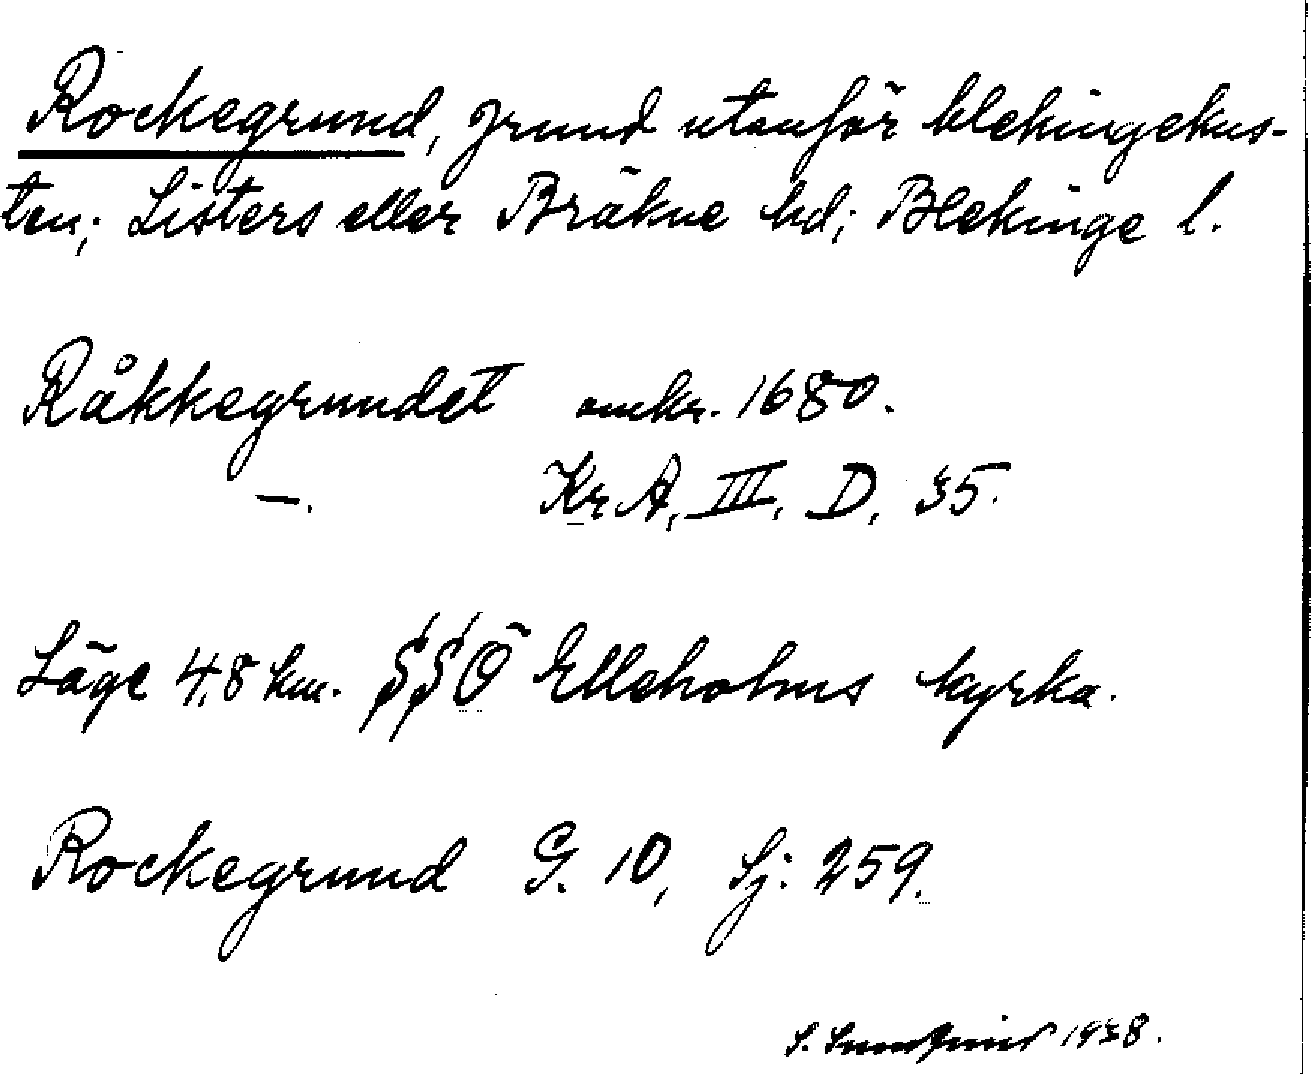 Rockegrund, grund utanför blekingekus-
ten; Listers eller Bräkne hd; Blekinge l.
Råkkegrundet omkr. 1680.
—. KrA, III, D, 35.
Läge 4,8 km. SSÖ Elleholms kyrka.
Rockegrund G. 10, Sj: 259.
S. 1938.